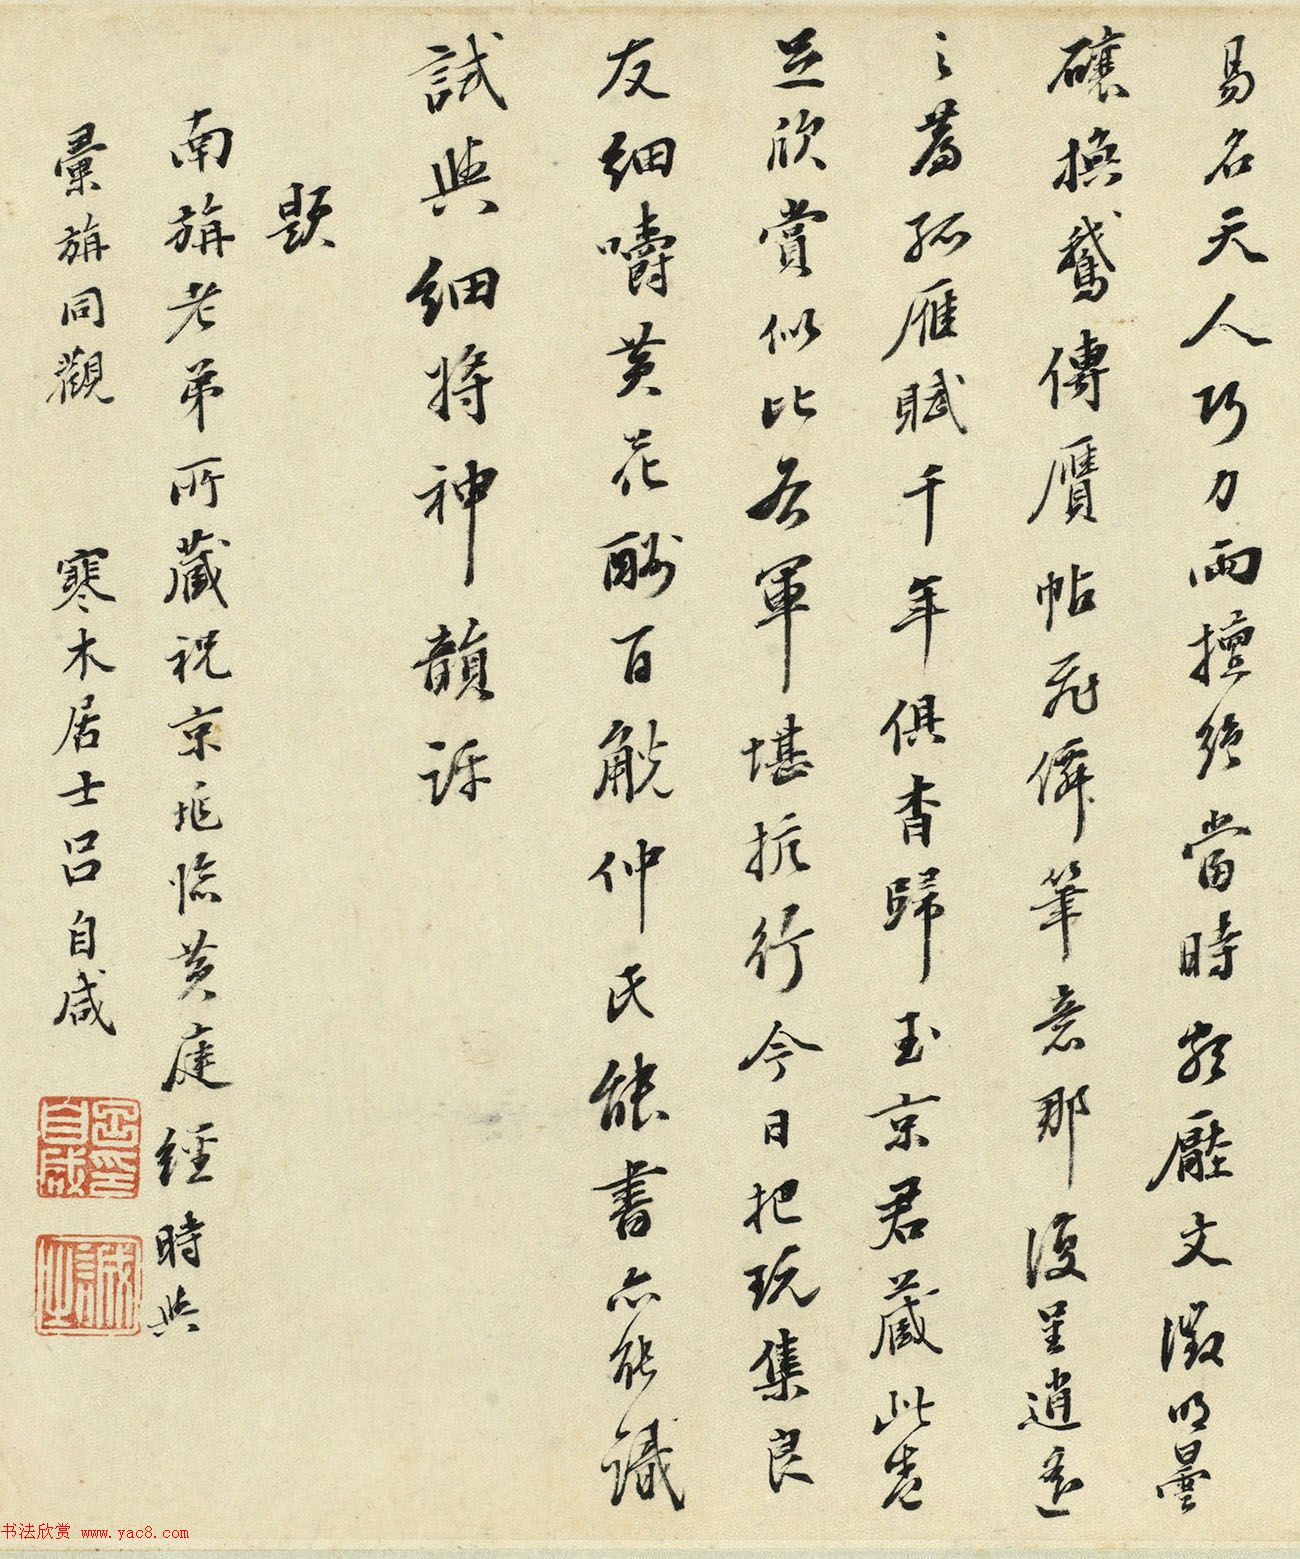 易名天人巧力兩擅絕當時頗壓文徵明曇
礦換鵞傳贋帖飛僊筆意那復呈逍遙
之篇孤雁賦千年俱杳歸玉京君藏此卷
足欣賞似比右軍堪抗行今日把玩集良
友細嚼黃花酬百觥仲氏能書亦能識
試與細將神韻評
題
南旃老弟所藏祝京兆臨黃庭經時與
彙旃同觀　寒木居士呂自咸
書法欣赏 www.yac8.com